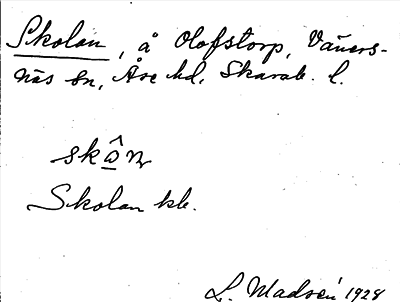 Skolan, å Olofstorp, Väners-
näs sn, Åse hd, Skarab. l.
skô̱n
Skolan kk.
L. Madsén 1928